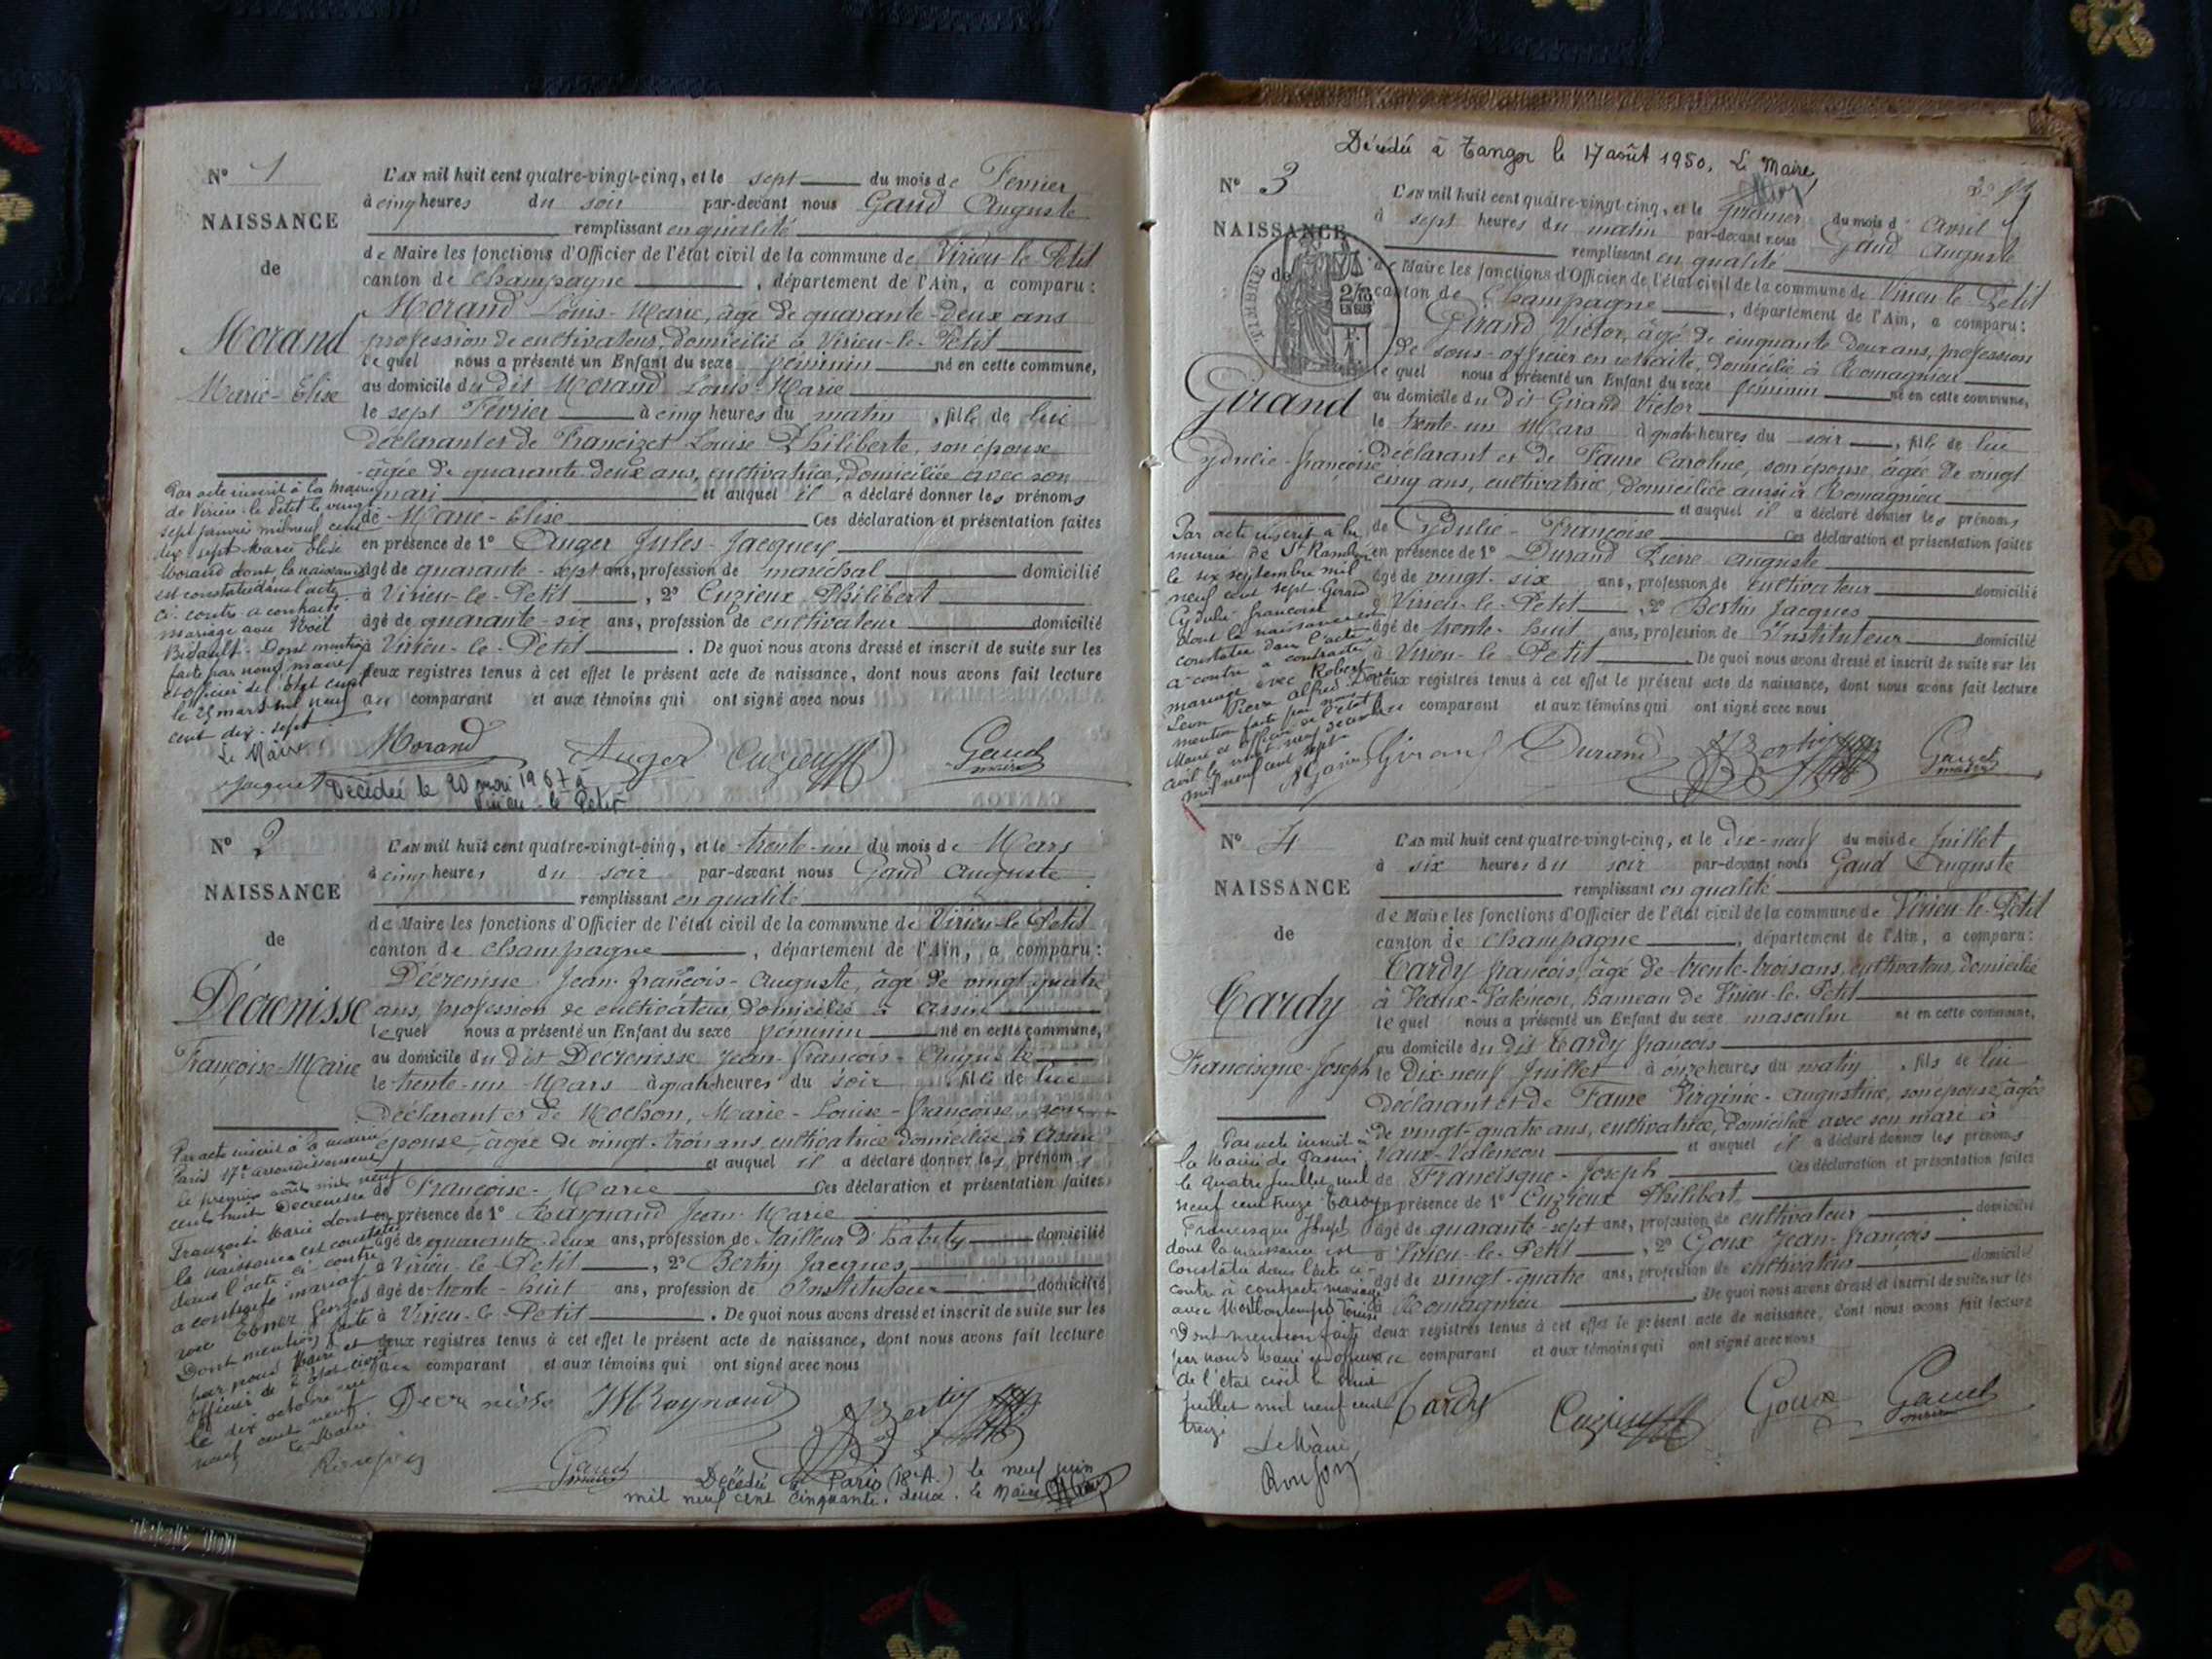 N° 1
NAISSANCE
de
Morand
Marie-Elise
L'an mil huit cent quatre-vingt-cinq, et le sept du mois de Fevrier
à cinq heures du soir par-devant nous Gaud Auguste
remplissant en qualité
de Maire les fonctions d'Officier de l'état civil de la commune de Virieu-le-Petit
canton de Champagne, département de l'Ain, a comparu:
Morand Louis-Marie, âgé de quarante-deux ans
profession de cultivateur, domicilié à Virieu-le-Petit
lequel nous a présenté un Enfant du sexe féminin né en cette commune,
au domicile du dit Morand Louis-Marie
le sept Fevrier à cinq heures du matin, fille de lui
déclarant et de Francizet Louise Philiberte, son épouse
âgée de quarante-deux ans, cultivatrice, domiciliée avec son
mari et auquel il a déclaré donner les prénoms
de Marie-Elise Ces déclaration et présentation faites
en présence de 1° Auger Jules-Jacques
âgé de quarante-sept ans, profession de maréchal domicilié
à Virieu-le-Petit, 2° Cuzieux Philibert
âgé de quarante-six ans, profession de cultivateur domicilié
à Virieu-le-Petit. De quoi nous avons dressé et inscrit de suite sur les
deux registres tenus à cet effet le présent acte de naissance, dont nous avons fait lecture
au comparant et aux témoins qui ont signé avec nous
Par acte inscrit à la mairie
de Virieu-le-Petit le vingt
sept janvier mil neuf cent
dix-sept Marie Elise
Morand dont la naissance
est constatée dans l'acte
ci-contre a contracté
mariage avec Noël
Bidault. Dont mention
faite par nous maire
et officier de l'état civil
le 25 mars mil neuf
cent dix-sept
Le Maire
Morand Auger Cuzieux Gaud
maire
Décédée le 20 mai 1967 à
Virieu-le-Petit
N° 2
NAISSANCE
de
Décrenisse
Françoise-Marie
L'an mil huit cent quatre-vingt-cinq, et le trente-un du mois de Mars
à cinq heures du soir par-devant nous Gaud Auguste
remplissant en qualité
de Maire les fonctions d'Officier de l'état civil de la commune de Virieu-le-Petit
canton de Champagne, département de l'Ain, a comparu:
Décrenisse Jean-François-Auguste, âgé de vingt-quatre
ans, profession de cultivateur, domicilié à Assin
lequel nous a présenté un Enfant du sexe féminin né en cette commune,
au domicile du dit Décrenisse Jean-François-Auguste
le trente-un Mars à quatre heures du soir fille de lui
déclarant et de Mochon, Marie-Louise-Françoise, son
épouse, âgée de vingt-trois ans, cultivatrice domiciliée à Assin
et auquel il a déclaré donner les prénoms
de Françoise-Marie Ces déclaration et présentation faites
en présence de 1° Raynaud Jean-Marie
âgé de quarante-deux ans, profession de tailleur d'habits domicilié
à Virieu-le-Petit, 2° Bertin Jacques
âgé de trente-huit ans, profession de Instituteur domicilié
à Virieu-le-Petit. De quoi nous avons dressé et inscrit de suite sur les
deux registres tenus à cet effet le présent acte de naissance, dont nous avons fait lecture
au comparant et aux témoins qui ont signé avec nous
Par acte inscrit à la mairie
Paris 17e arrondissement
le premier août mil neuf
cent huit Decrenisse
Françoise Marie dont
la naissance est constatée
dans l'acte ci-contre
a contracté mariage
avec Ebner Georges
Dont mention faite
par nous Maire et
officier de l'état civil
le dix octobre mil
neuf cent neuf
Le Maire
Decrenisse JM Raynaud Bertin
Gaud
maire
Décédée à Paris (18e A.) le neuf juin
mil neuf cent cinquante-deux. le Maire
Décédée à Tanger le 17 août 1950. Le Maire
N° 3
NAISSANCE
de
TIMBRE
2/10
EN SUS
Girand
Cydulie-Françoise
L'an mil huit cent quatre-vingt-cinq, et le premier du mois d'Avril
à sept heures du matin par-devant nous Gaud Auguste
remplissant en qualité
de Maire les fonctions d'Officier de l'état civil de la commune de Virieu-le-Petit
canton de Champagne, département de l'Ain, a comparu:
Girand Victor, âgé de cinquante deux ans, profession
de sous-officier en retraite, domicilié à Romagnieu
lequel nous a présenté un Enfant du sexe féminin né en cette commune,
au domicile du dit Girand Victor
le trente-un Mars à quatre heures du soir, fille de lui
déclarant et de Faure Caroline, son épouse âgée de vingt
cinq ans, cultivatrice, domiciliée aussi à Romagnieu
et auquel il a déclaré donner les prénoms
de Cydulie-Françoise Ces déclaration et présentation faites
en présence de 1° Durand Pierre Auguste
âgé de vingt-six ans, profession de cultivateur domicilié
à Virieu-le-Petit, 2° Bertin Jacques
âgé de trente-huit ans, profession de Instituteur domicilié
à Virieu-le-Petit. De quoi nous avons dressé et inscrit de suite sur les
deux registres tenus à cet effet le présent acte de naissance, dont nous avons fait lecture
au comparant et aux témoins qui ont signé avec nous
Par acte inscrit à la
mairie de St Rambert
le six septembre mil
neuf cent sept Girand
Cydulie Françoise
dont la naissance est
constatée dans l'acte
ci-contre a contracté
mariage avec Robert
Leon Pierre Alfred. Dont
mention faite par nous
Maire et officier de l'état
civil le vingt neuf décembre
mil neuf cent sept
Girand Durand Bertin Gaud
maire
N° 4
NAISSANCE
de
Tardy
Francisque-Joseph
L'an mil huit cent quatre-vingt-cinq, et le dix-neuf du mois de Juillet
à six heures du soir par-devant nous Gaud Auguste
remplissant en qualité
de Maire les fonctions d'Officier de l'état civil de la commune de Virieu-le-Petit
canton de Champagne, département de l'Ain, a comparu:
Tardy François, âgé de trente-trois ans, cultivateur, domicilié
à Vaux-Valencon, hameau de Virieu-le-Petit
lequel nous a présenté un Enfant du sexe masculin né en cette commune,
au domicile du dit Tardy François
le Dix-neuf Juillet à onze heures du matin, fils de lui
déclarant et de Faure Virginie-Augustine, son épouse, âgée
de vingt-quatre ans, cultivatrice, domiciliée avec son mari à
Vaux-Valencon et auquel il a déclaré donner les prénoms
de Francisque-Joseph Ces déclaration et présentation faites
en présence de 1° Cuzieux Philibert
âgé de quarante-sept ans, profession de cultivateur domicilié
à Virieu-le-Petit, 2° Goux Jean-François
âgé de vingt-quatre ans, profession de cultivateur domicilié
à Romagnieu. De quoi nous avons dressé et inscrit de suite sur les
deux registres tenus à cet effet le présent acte de naissance, dont nous avons fait lecture
au comparant et aux témoins qui ont signé avec nous
Par acte inscrit à
la Mairie de Passin
le quatre juillet mil
neuf cent treize Tardy
Francisque Joseph
dont la naissance est
constatée dans l'acte ci-
contre à contracté mariage
avec Louise
Dont mention faite
par nous Maire et officier
de l'état civil le huit
juillet mil neuf cent
treize
Le Maire
Tardy Cuzieux Goux Gaud
maire